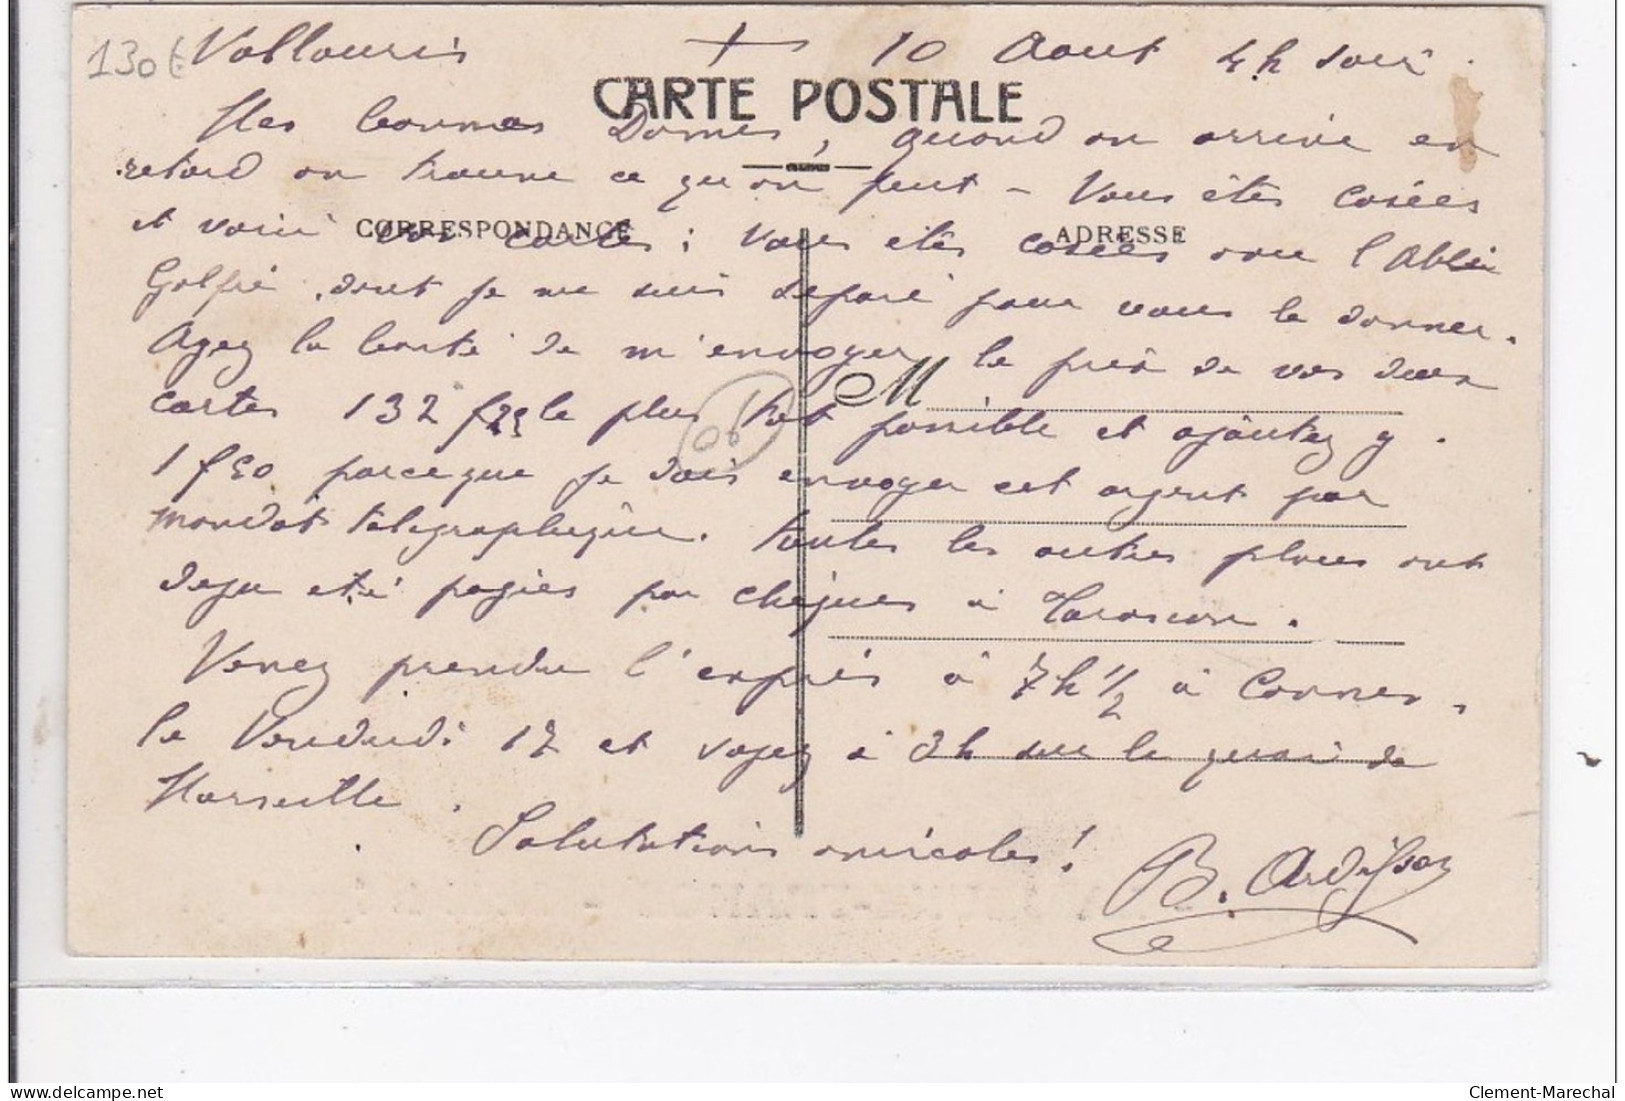 130€ Vallauris + 10 Aout 4h soir.
CARTE POSTALE
Mes bonnes Dames, quand on arrive en
retard on trouve ce qu'on peut – Vous êtes casées
CORRESPONDANCE
ADRESSE
et voici vos cartes ; vous êtes casées avec l'Abbé
Golfié, dont je me suis séparé pour vous le donner.
Ayez la bonté de m'envoyer le prix de vos deux
M
cartes 132 f 25 le plus tôt possible et ajoutez y
1 f 50 parceque je dois envoyer cet argent par
mandat télégraphique. Toutes les autres places ont
deja été payées par chèques à Tarascon.
Venez prendre l'express à 7h 1/2 à Cannes,
le Vendredi 17 et soyez à 2h sur le quai de
Marseille.
Salutations amicales !
B. Ardisson
Clement-Marechal